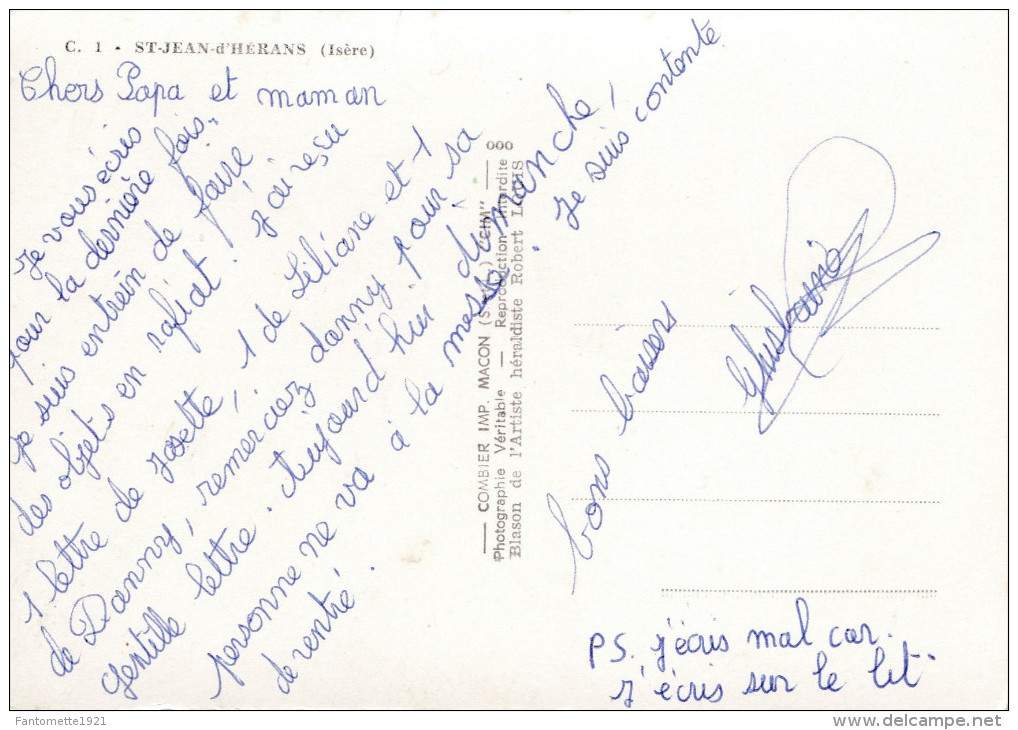 C. 1 - ST-JEAN-d'HÉRANS (Isère)
Chers Papa et maman
Je vous écris
pour la dernière fois,
je suis entrein de faire
des objets en rafiat. J'ai reçu
1 lettre de Josette, 1 de Liliane et 1
de Danny, remerciez danny pour sa
gentille lettre. Aujourd'hui dimanche,
personne ne va à la messe. Je suis contente
de rentré.
bons baisers
PS. j'écris mal car
j'écris sur le lit
COMBIER IMP. MACON (S.-&-L.) "CIM"
Photographie Véritable — Reproduction Interdite
Blason de l'Artiste héraldiste Robert LOUIS
Fantomette1921
delcampe.net